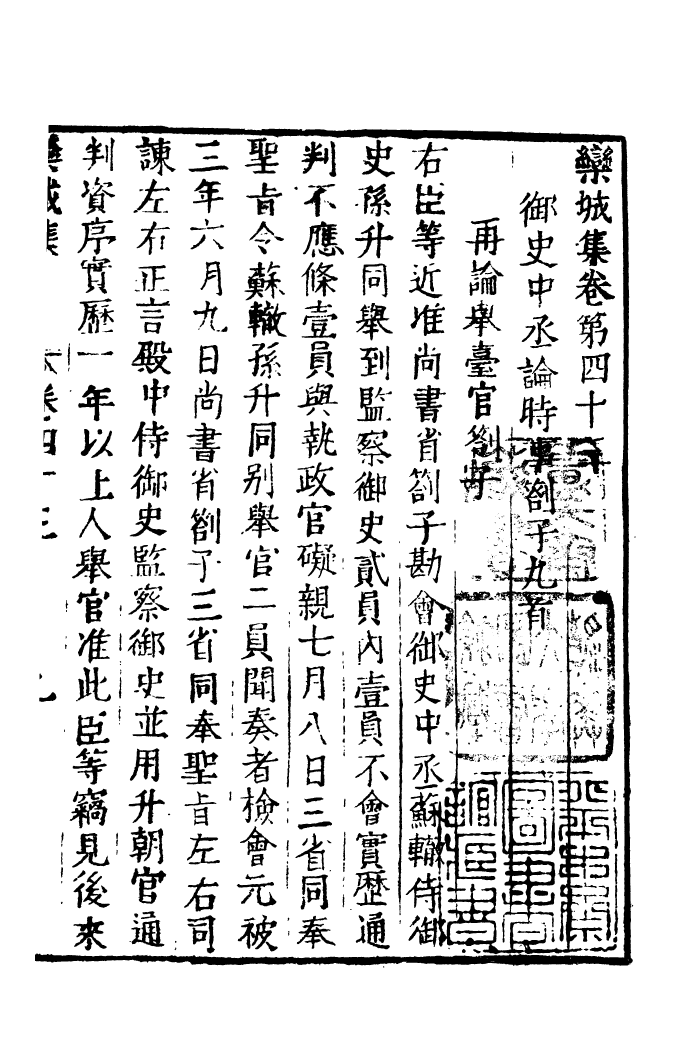 欒城集卷第四十三
御史中丞論時事劄子九首
再論舉臺官劄子
右臣等近准尚書省劄子勘會御史中丞蘇轍侍御
史孫升同舉到監察御史貳員內壹員不會實歷通
判不應條壹員與執政官礙親七月八日三省同奉
聖旨令蘇轍孫升同別舉官二員聞奏者檢會元被
三年六月九日尚書省劄子三省同奉聖旨左右司
諫左右正言殿中侍御史監察御史並用升朝官通
判資序實歷一年以上人舉官准此臣等竊見後來
欒城集
卷四十三